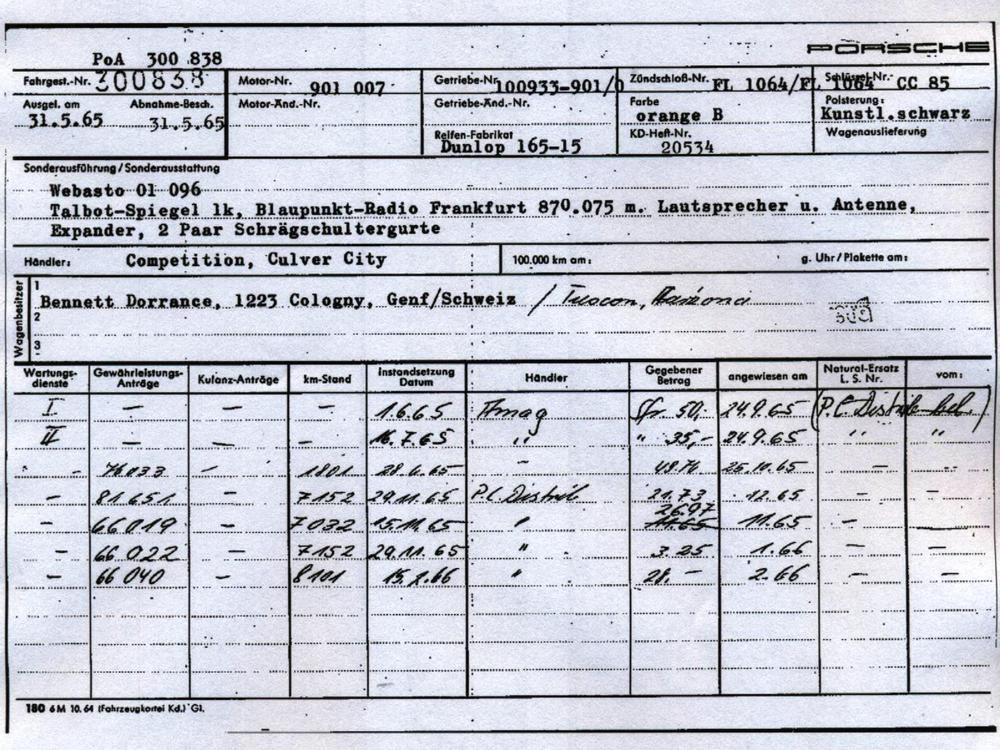 PORSCHE
PoA 300 838
Fahrgest.-Nr. 300838 Motor-Nr. 901 007 Getriebe-Nr. 100933-901/0 Zündschloß-Nr. FL 1064/FL 1064 Schlüssel-Nr. CC 85
Ausgel. am 31.5.65 Abnahme-Besch. 31.5.65 Motor-Änd.-Nr. Getriebe-Änd.-Nr. Farbe orange B Polsterung: Kunstl.schwarz
Reifen-Fabrikat Dunlop 165-15 KD-Heft-Nr. 20534 Wagenauslieferung
Sonderausführung/Sonderausstattung
Webasto 01 096
Talbot-Spiegel lk, Blaupunkt-Radio Frankfurt 870.075 m. Lautsprecher u. Antenne,
Expander, 2 Paar Schrägschultergurte
Händler: Competition, Culver City 100.000 km am: g. Uhr/Plakette am:
Wagenbesitzer
1 Bennett Dorrance, 1223 Cologny, Genf/Schweiz /
2
3
Wartungs-dienste Gewährleistungs-Anträge Kulanz-Anträge km-Stand Instandsetzung Datum Händler Gegebener Betrag angewiesen am Natural-Ersatz L. S. Nr. vom:
I — — — 1.6.65 Amag Sfr. 50,- 24.9.65 (P.C. Distrib
II — — — 16.7.65 " " 35,- 24.9.65 " "
- 76033 — 1801 28.6.65 - 25.10.65 — -
— 81651 — 7152 29.11.65 P.C. Distrib 21.73 12.65 — —
— 66019 — 7032 15.11.65 " 26.97 11.65 — —
— 66022 — 7152 29.11.65 " 3.25 1.66 — —
— 66040 — 8101 15.2.66 " 28.- 2.66 — —
180 6M 10.64 (Fahrzeugkartei Kd.) Gl.